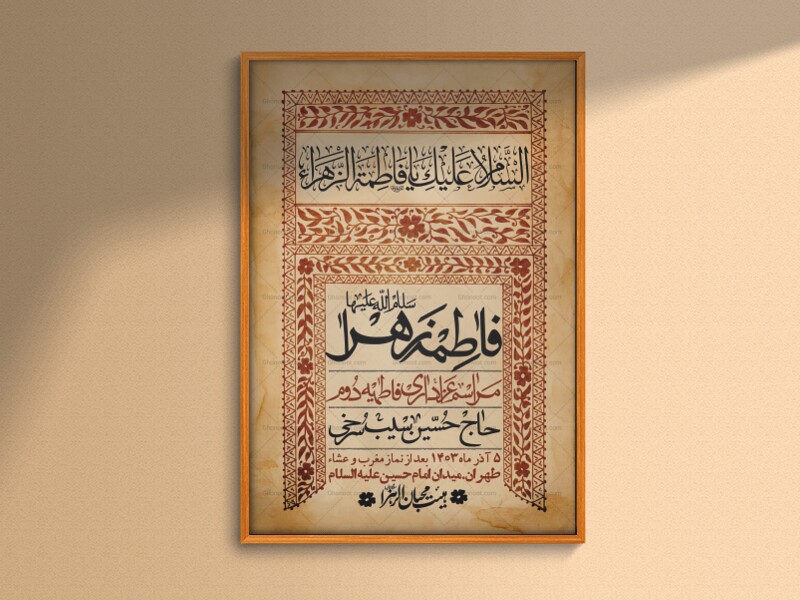 السَّلامُ عَلَیكَ یا فاطِمَة الزَّهراء
سلام الله علیها
فاطمه زهرا
مراسم عزاداری فاطمیه دوم
حاج حسین سیب سرخی
۵ آذر ماه ۱۴۰۳ بعد از نماز مغرب و عشاء
طهران.میدان امام حسین علیه السلام
هیئت محبان الزهرا